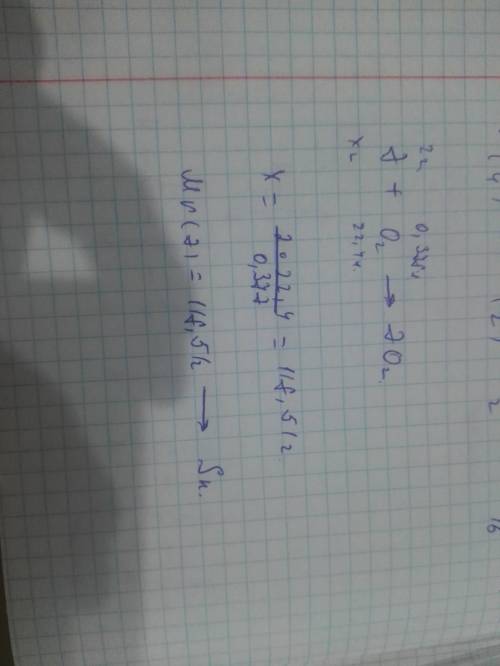 2г 0,378л
Э + O₂ → ЭO₂
xг 22,4л
x = 2·22,4 / 0,378 = 118,51г
Mr(Э) = 118,51г → Sn.